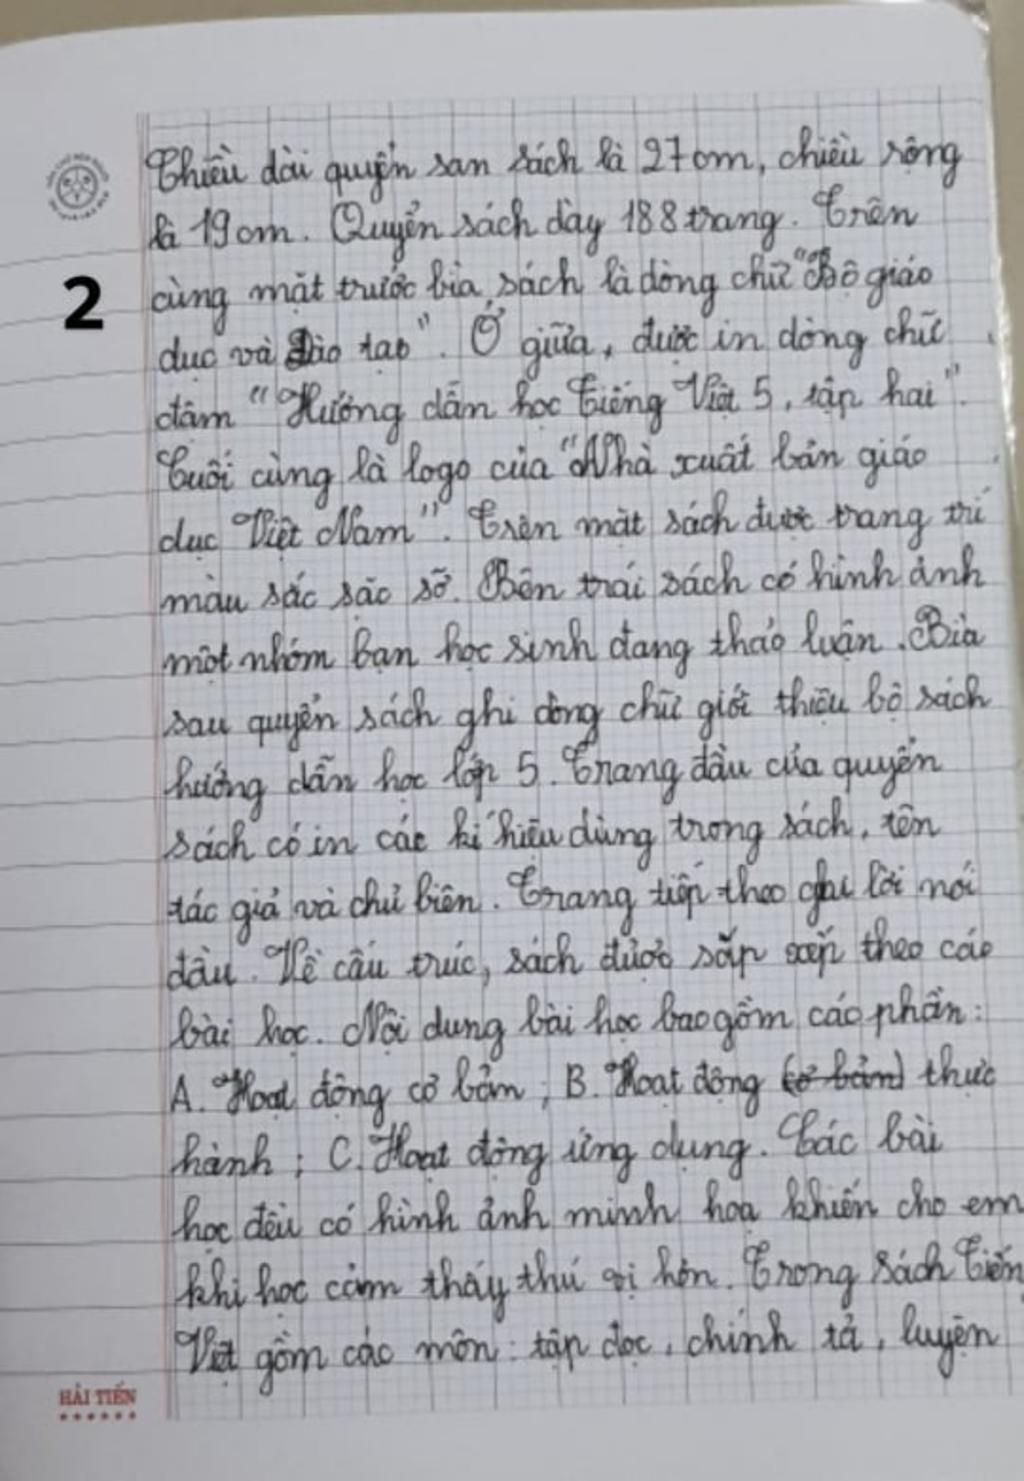 Chiều dài quyển san sách là 27cm, chiều rộng
là 19cm. Quyển sách dày 188 trang. Trên
cùng mặt trước bìa sách là dòng chữ "Bộ giáo
dục và Đào tạo". Ở giữa, được in dòng chữ
đậm "Hướng dẫn học Tiếng Việt 5, tập hai".
Cuối cùng là logo của "Nhà xuất bản giáo
dục Việt Nam". Trên mặt sách được trang trí
màu sắc sặc sỡ. Bên trái sách có hình ảnh
một nhóm bạn học sinh đang thảo luận. Bìa
sau quyển sách ghi dòng chữ giới thiệu bộ sách
hướng dẫn học lớp 5. Trang đầu của quyển
sách có in các kí hiệu dùng trong sách, tên
tác giả và chủ biên. Trang tiếp theo ghi lời nói
đầu. Về cấu trúc, sách được sắp xếp theo các
bài học. Nội dung bài học bao gồm các phần:
A. Hoạt động cơ bản; B. Hoạt động (cơ bản) thực
hành; C. Hoạt động ứng dụng. Các bài
học đều có hình ảnh minh hoạ khiến cho em
khi học cảm thấy thú vị hơn. Trong sách Tiếng
Việt gồm các môn: tập đọc, chính tả, luyện
2
HẢI TIẾN